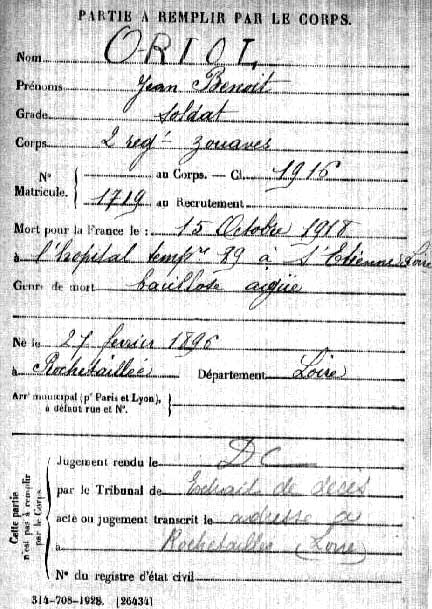 PARTIE À REMPLIR PAR LE CORPS.
Nom ORIOL
Prénoms Jean Benoit
Grade Soldat
Corps 2 regt zouaves
N° Matricule. au Corps. — Cl. 1916
1719 au Recrutement
Mort pour la France le : 15 Octobre 1918
à l'hopital tempre 29 à St Etienne Loire
Genre de mort bacillose aigüe
Né le 27 fevrier 1896
à Rochetaillée Département Loire
Arrt municipal (pr Paris et Lyon),
à défaut rue et N°.
Cette partie
n'est pas à remplir
par le Corps.
Jugement rendu le DC
par le Tribunal de Extrait de décès
acte ou jugement transcrit le adresse a
à Rochetaillée (Loire)
N° du registre d'état civil
314-708-1928. [26434]